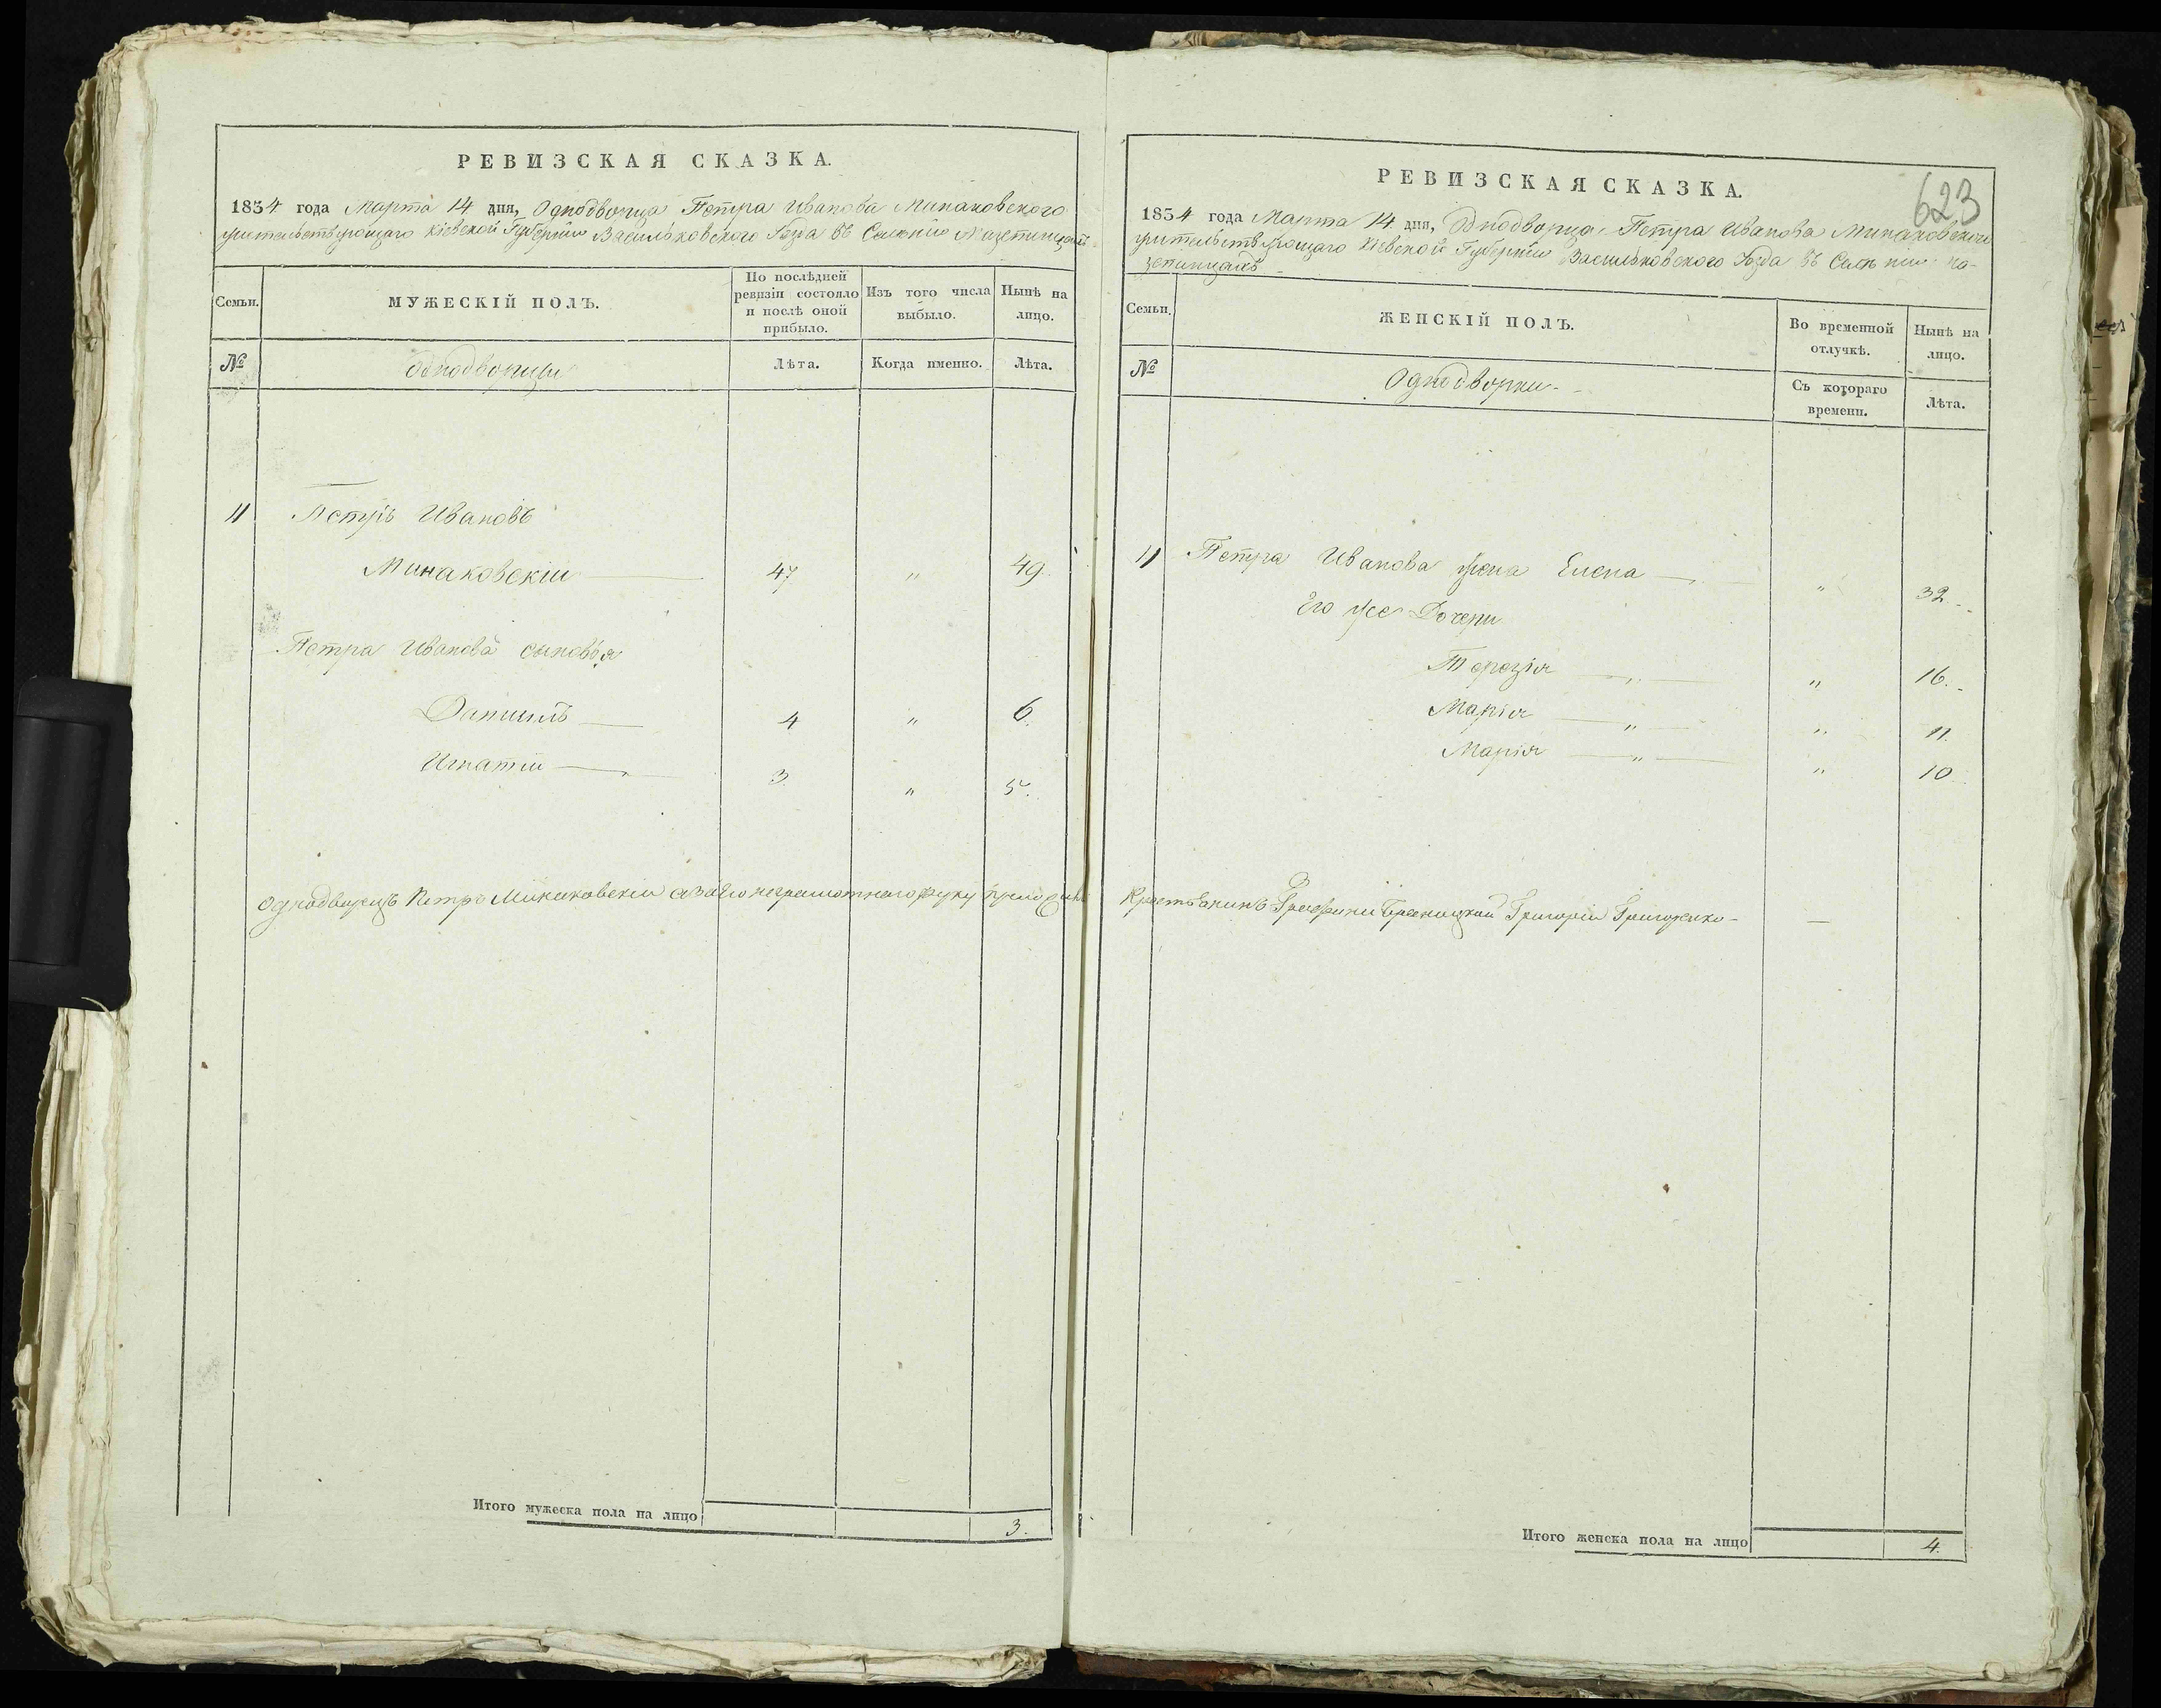 РЕВИЗСКАЯ СКАЗКА.
1834 года Марта 14 дня, Однодворца Петра Иванова Минаковского
жительствующаго Кіевской Губерніи Васильковского Уезда въ Селеніи Мазепинцах
Семьи.
МУЖЕСКІЙ ПОЛЪ.
По послѣдней ревизіи состояло и послѣ оной прибыло.
Изъ того числа выбыло.
Нынѣ на лицо.
№
Однодворцы
Лѣта.
Когда именно.
Лѣта.
11 Петръ Ивановъ
Минаковскій 47 " 49.
Петра Иванова сыновья
Данилъ 4 " 6.
Игнатій 3. " 5.
Однодворецъ Петръ Минаковскій а за его неграмотного руку приложилъ
Итого мужеска пола на лицо 3.
623
РЕВИЗСКАЯ СКАЗКА.
1834 года Марта 14 дня, Однодворца Петра Иванова Минаковского
жительствующаго Кіевской Губерніи Васильковского Уезда въ Селеніи Ма-
зепинцахъ
Семьи.
ЖЕНСКІЙ ПОЛЪ.
Во временной отлучкѣ.
Нынѣ на лицо.
№
Однодворки
Съ котораго времени.
Лѣта.
11 Петра Иванова жена Елена " 32.
Его же Дочери
Терезія " 16.
Марія " 11.
Марія " 10
Крестьянинъ Графини Браницкой Григорій Григоренко
Итого женска пола на лицо 4.